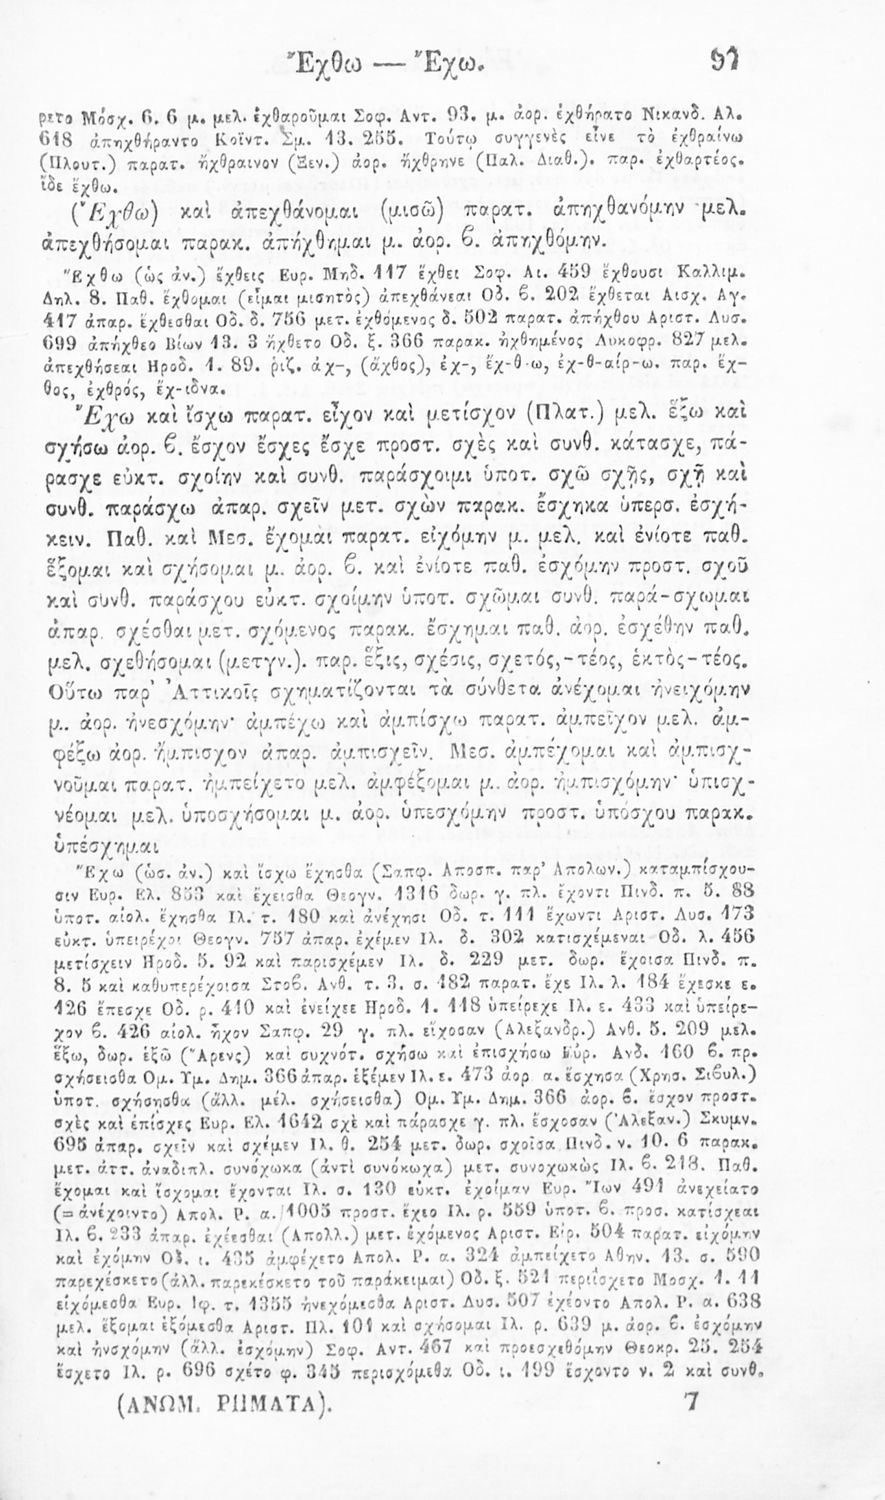 Ἔχθω — Ἔχω. 97
ρετο Μόσχ. 6. 6 μ. μελ. ἐχθαροῦμαι Σοφ. Αντ. 93. μ. ἀορ. ἐχθήρατο Νικανδ. Αλ.
618 ἀπηχθήραντο Κοϊντ. Σμ. 13. 255. Τούτῳ συγγενὲς εἶνε τὸ ἐχθραίνω
(Πλουτ.) παρατ. ἤχθραινον (Ξεν.) ἀορ. ἤχθρηνε (Παλ. Διαθ.). παρ. ἐχθαρτέος.
ἴδε ἔχθω.
(Ἔχθω) καὶ ἀπεχθάνομαι (μισῶ) παρατ. ἀπηχθανόμην μελ.
ἀπεχθήσομαι παρακ. ἀπήχθημαι μ. ἀορ. ϐ. ἀπηχθόμην.
Ἔχθω (ὡς ἀν.) ἔχθεις Ευρ. Μηδ. 117 ἔχθει Σοφ. Αι. 459 ἔχθουσι Καλλιμ.
Δηλ. 8. Παθ. ἔχθομαι (εἶμαι μισητὸς) ἀπεχθάνεαι Οδ. ϐ. 202 ἔχθεται Αισχ. Αγ.
417 ἀπαρ. ἔχθεσθαι Οδ. δ. 756 μετ. ἐχθόμενος δ. 502 παρατ. ἀπήχθου Αριστ. Λυσ.
699 ἀπήχθεο Βίων 13. 3 ἤχθετο Οδ. ξ. 366 παρακ. ἠχθημένος Λυκοφρ. 827 μελ.
ἀπεχθήσεαι Ηροδ. 1. 89. ῥιζ. ἀχ-, (ἄχθος), ἐχ-, ἔχ-θ-ω, ἐχ-θ-αίρ-ω. παρ. ἔχ-
θος, ἐχθρός, ἔχ-ιδνα.
Ἔχω καὶ ἴσχω παρατ. εἶχον καὶ μετίσχον (Πλατ.) μελ. ἕξω καὶ
σχήσω ἀορ. ϐ. ἔσχον ἔσχες ἔσχε προστ. σχὲς καὶ συνθ. κάτασχε, πά-
ρασχε εὐκτ. σχοίην καὶ συνθ. παράσχοιμι ὑποτ. σχῶ σχῇς, σχῇ καὶ
συνθ. παράσχω ἀπαρ. σχεῖν μετ. σχὼν παρακ. ἔσχηκα ὑπερσ. ἐσχή-
κειν. Παθ. καὶ Μεσ. ἔχομαι παρατ. εἰχόμην μ. μελ. καὶ ἐνίοτε παθ.
ἕξομαι καὶ σχήσομαι μ. ἀορ. ϐ. καὶ ἐνίοτε παθ. ἐσχόμην προστ. σχοῦ
καὶ συνθ. παράσχου εὐκτ. σχοίμην ὑποτ. σχῶμαι συνθ. παρά-σχωμαι
ἀπαρ. σχέσθαι μετ. σχόμενος παρακ. ἔσχημαι παθ. ἀορ. ἐσχέθην παθ.
μελ. σχεθήσομαι (μετγν.). παρ. ἕξις, σχέσις, σχετός,-τέος, ἑκτὸς-τέος.
Οὕτω παρ’ Ἀττικοῖς σχηματίζονται τὰ σύνθετα ἀνέχομαι ἠνειχόμην
μ. ἀορ. ἠνεσχόμην· ἀμπέχω καὶ ἀμπίσχω παρατ. ἀμπεῖχον μελ. ἀμ-
φέξω ἀορ. ἤμπισχον ἀπαρ. ἀμπισχεῖν. Μεσ. ἀμπέχομαι καὶ ἀμπισχ-
νοῦμαι παρατ. ἠμπείχετο μελ. ἀμφέξομαι μ. ἀορ. ἠμπισχόμην· ὑπισχ-
νέομαι μελ. ὑποσχήσομαι μ. ἀορ. ὑπεσχόμην προστ. ὑπόσχου παρακ.
ὑπέσχημαι
Ἔχω (ὡσ. ἀν.) καὶ ἴσχω ἔχησθα (Σαπφ. Αποσπ. παρ’ Απολων.) καταμπίσχου-
σιν Ευρ. Ελ. 853 καὶ ἔχεισθα Θεογν. 1316 δωρ. γ. πλ. ἔχοντι Πινδ. π. 5. 88
ὑποτ. αἰολ. ἔχησθα Ιλ. τ. 180 καὶ ἀνέχησι Οδ. τ. 111 ἔχωντι Αριστ. Λυσ. 173
εὐκτ. ὑπειρέχοι Θεογν. 757 ἀπαρ. ἐχέμεν Ιλ. δ. 302 κατισχέμεναι Οδ. λ. 456
μετίσχειν Ηροδ. 5. 92 καὶ παρισχέμεν Ιλ. δ. 229 μετ. δωρ. ἔχοισα Πινδ. π.
8. 5 καὶ καθυπερέχοισα Στοϐ. Ανθ. τ. 3. σ. 482 παρατ. ἔχε Ιλ. λ. 184 ἔχεσκε ε.
126 ἔπεσχε Οδ. ρ. 410 καὶ ἐνείχεε Ηροδ. 1. 118 ὑπείρεχε Ιλ. ε. 433 καὶ ὑπείρε-
χον ϐ. 426 αἰολ. ἦχον Σαπφ. 29 γ. πλ. εἴχοσαν (Αλεξανδρ.) Ανθ. 5. 209 μελ.
ἕξω, δωρ. ἑξῶ (Ἄρενς) καὶ συχνότ. σχήσω καὶ ἐπισχήσω Εὐρ. Ανδ. 160 ϐ. πρ.
σχήσεισθα Ομ. Υμ. Δημ. 366 ἀπαρ. ἑξέμεν Ιλ. ε. 473 ἀορ α. ἔσχησα (Χρησ. Σιϐυλ.)
ὑποτ. σχήσησθα (ἄλλ. μέλ. σχήσεισθα) Ομ. Υμ. Δημ. 366 ἀορ. ϐ. ἔσχον προστ.
σχὲς καὶ ἐπίσχες Ευρ. Ελ. 1642 σχὲ καὶ πάρασχε γ. πλ. ἔσχοσαν (Ἀλεξαν.) Σκυμν.
695 ἀπαρ. σχεῖν καὶ σχέμεν Ιλ. θ. 254 μετ. δωρ. σχοῖσα Πινδ. ν. 10. 6 παρακ.
μετ. ἀττ. ἀναδιπλ. συνόχωκα (ἀντὶ συνόκωχα) μετ. συνοχωκὼς Ιλ. ϐ. 218. Παθ.
ἔχομαι καὶ ἴσχομαι ἔχονται Ιλ. σ. 130 εὐκτ. ἐχοίμαν Ευρ. Ἴων 491 ἀνεχείατο
(=ἀνέχοιντο) Απολ. Ρ. α. 1005 προστ. ἔχεο Ιλ. ρ. 559 ὑποτ. ϐ. προσ. κατίσχεαι
Ιλ. ϐ. 233 ἀπαρ. ἐχέεσθαι (Απολλ.) μετ. ἐχόμενος Αριστ. Εἰρ. 504 παρατ. εἰχόμην
καὶ ἐχόμην Οδ. ι. 435 ἀμφέχετο Απολ. Ρ. α. 324 ἀμπείχετο Αθην. 13. σ. 590
παρεχέσκετο (ἀλλ. παρεκέσκετο τοῦ παράκειμαι) Οδ. ξ. 521 περιίσχετο Μοσχ. 1. 11
εἰχόμεσθα Ευρ. Ιφ. τ. 1355 ἠνεχόμεσθα Αριστ. Λυσ. 507 ἐχέοντο Απολ. Ρ. α. 638
μελ. ἕξομαι ἑξόμεσθα Αριστ. Πλ. 101 καὶ σχήσομαι Ιλ. ρ. 639 μ. ἀορ. ϐ. ἐσχόμην
καὶ ἠνσχόμην (ἄλλ. ἐσχόμην) Σοφ. Αντ. 467 καὶ προεσχεθόμην Θεοκρ. 25. 254
ἔσχετο Ιλ. ρ. 696 σχέτο φ. 345 περισχόμεθα Οδ. ι. 199 ἔσχοντο ν. 2 καὶ συνθ.
(ΑΝΩΜ. ΡΗΜΑΤΑ). 7